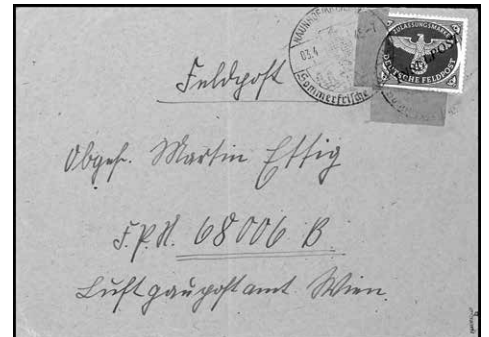 Feldpost
Sommerfrische
ZULASSUNGSMARKE
DEUTSCHE FELDPOST
Obgefr. Martin Ettig
F.P.N. 68006 B.
Luftgaupostamt Wien.